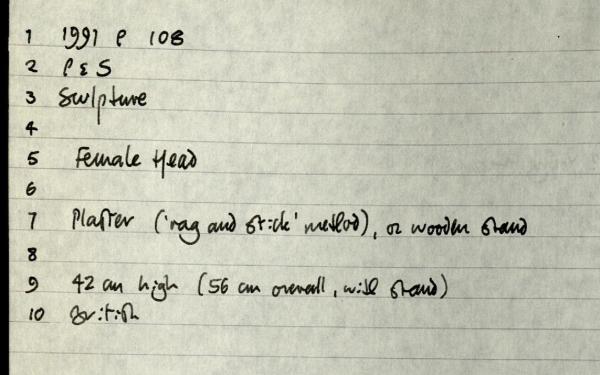 1 1991 P 108
2 P & S
3 Sculpture
4
5 Female Head
6
7 Plaster ('rag and stick' method), on wooden stand
8
9 42 cm high (56 cm overall, with stand)
10 British